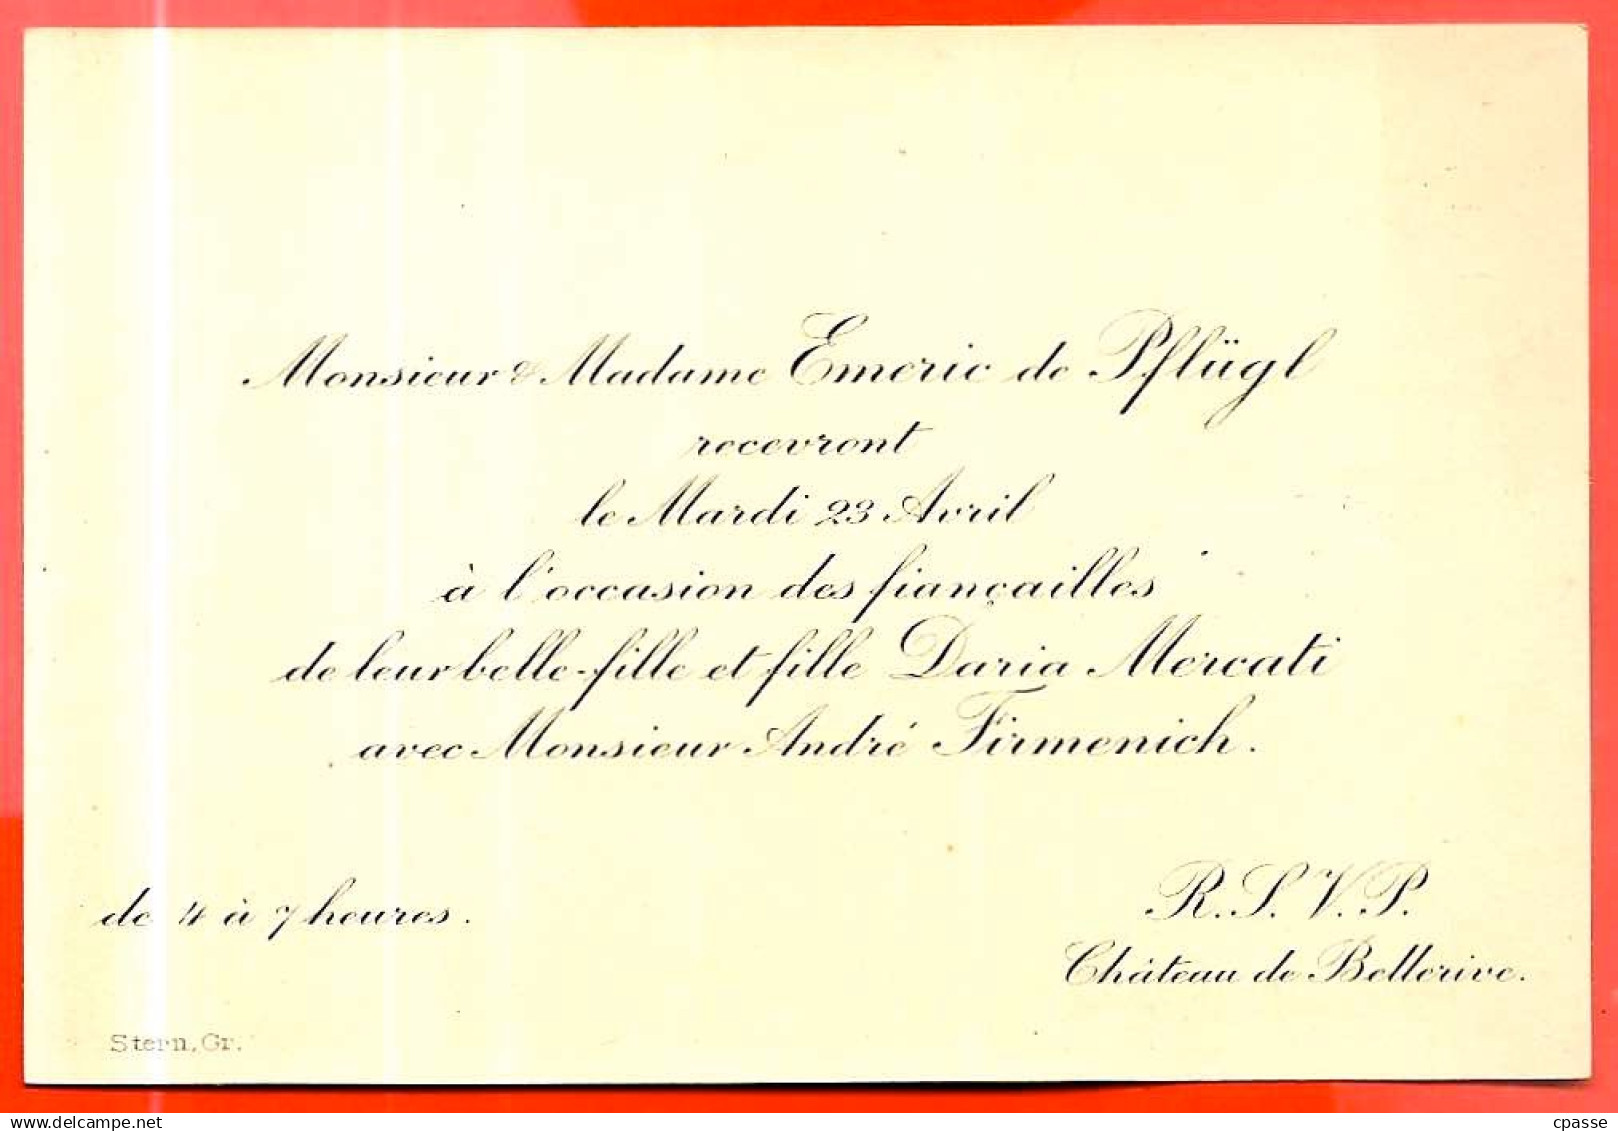 Monsieur & Madame Emeric de Pflügl
recevront
le Mardi 23 Avril
à l'occasion des fiançailles
de leur belle-fille et fille Daria Mercati
avec Monsieur André Firmenich.
de 4 à 7 heures.
R.S.V.P.
Château de Bellerive.
Stern, Gr.
delcampe.net
cpasse